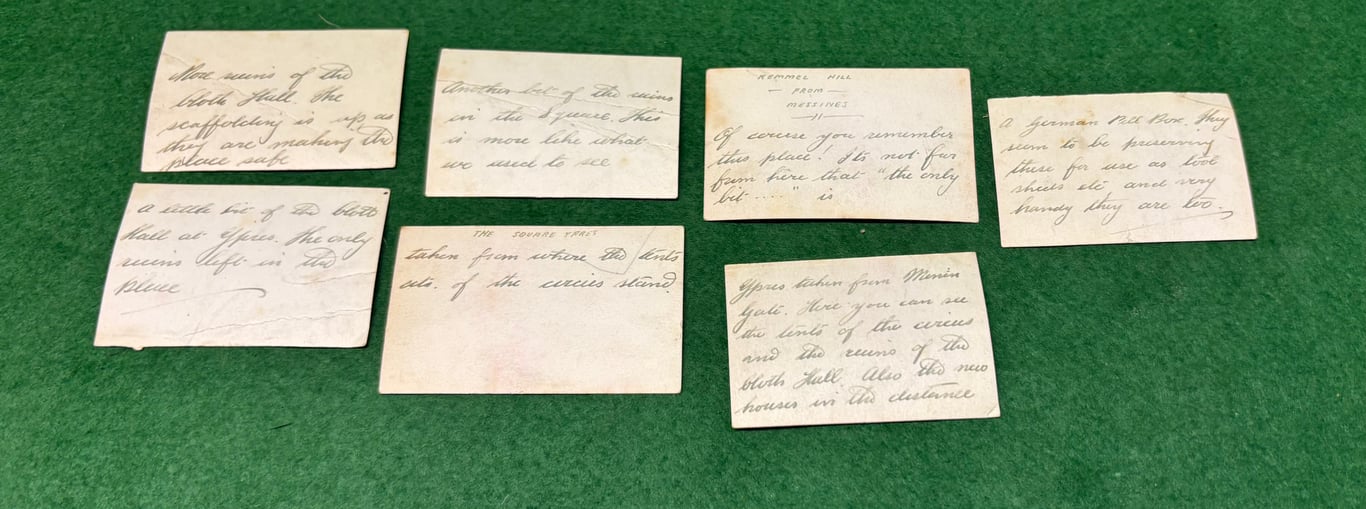 More ruins of the
Cloth Hall. The
scaffolding is up as
they are making the
place safe
Another bit of the ruins
in the Square. This
is more like what
we used to see
KEMMEL HILL
— FROM —
MESSINES
Of course you remember
this place! Its not far
from here that "the only
bit ...." is
A German Pill Box. They
seem to be preserving
these for use as tool
sheds etc and very
handy they are too.
A little bit of the Cloth
Hall at Ypres. The only
ruins left in the
place
THE SQUARE YPRES
taken from where the tents
etc. of the circus stand.
Ypres taken from Menin
Gate. Here you can see
the tents of the circus
and the ruins of the
Cloth Hall. Also the new
houses in the distance